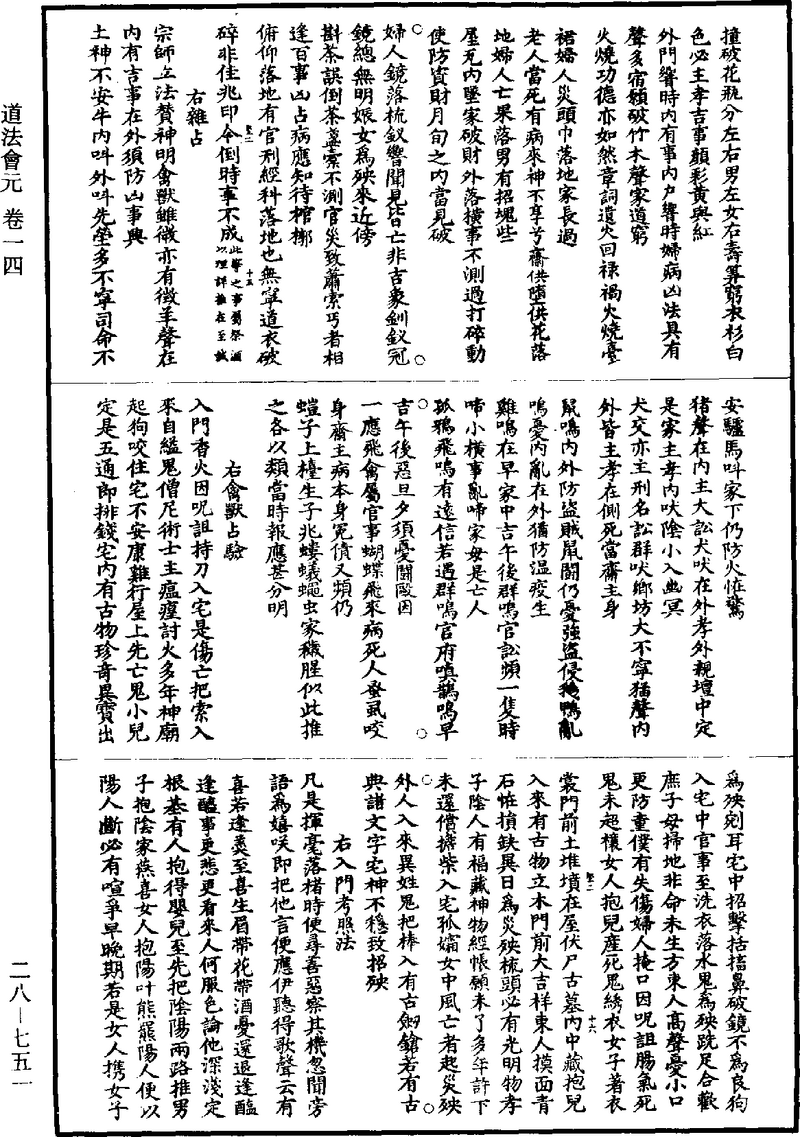 道法會元 卷一四
撞破花瓶分左右男左女在壽算窮衣衫白
色必主孝吉事顏彩黃與紅
外門響時內有事內户響時婦病凶法具有
聲多宿願破竹木聲家道窮
火燒功德亦如然章詞遺火回祿禍火燒臺
裙婦人災頭巾落地家長過
老人當死有病來神不享兮齋供墮供花落
地婦人亡果落男有招塊些
屋瓦內墜家破財外落橫事不測過打碎動
使防資財月旬之內當見破
婦人鏡落梳釵響聞見皆亡非吉象釧釵冠
鏡總無明娘女為殃來近傍
斟茶誤倒茶盞索不測官災致蕭索丐者相
逢百事凶占病應知待棺槨
俯仰落地有官刑經科落地也無寧道衣破
碎非佳兆印令倒時事不成此等之事蜀祭酒以理詳推在至誠
右雜占
宗師立法贊神明禽獸雖微亦有徵羊聲在
內有吉事在外須防凶事興
土神不安牛內叫外叫先塋多不寧司命不
安驢馬叫家下仍防火怪驚
猪聲在內主大訟犬吠在外孝外親壇中定
是家主孝內吠陰小入幽冥
犬交亦主刑名訟群吠鄉坊大不寧猫聲內
外皆主孝在側死當齋主身
鼠鳴內外防盜賊鼠鬬仍憂強盜侵鵝鴨亂
鳴憂內亂在外猶防温疫生
雞鳴在早家中吉午後群鳴官訟頻一隻時
啼小橫事亂啼家母是亡人
孤鴉飛鳴有遠信若遇群鳴官府嗔鵲鳴早
吉午後惡旦夕須憂鬬毆因
一應飛禽屬官事蝴蝶飛來病死人蚤虱咬
身齋主病本身冤債又頻仍
螘子上檯生子兆螻蟻蠅虫家穢腥似此推
之各以類當時報應甚分明
右禽獸占驗
入門香火因呪詛持刀入宅是傷亡把索入
來自縊鬼僧尼術士主瘟㾮討火多年神廟
起狗咬住宅不安康雞行屋上先亡鬼小兒
定是五通郎排錢宅內有古物珍奇異寶出
為殃剜耳宅中招擊括搐鼻破鏡不為良狗
入宅中官事至洗衣落水鬼為殃跣足合歡
庶子母掃地非命未生方東人高聲憂小口
更防童僕有失傷婦人掩口因呪詛腸氣死
鬼未超穰女人抱兒產死鬼綉衣女子著衣
裳門前土堆墳在屋伏尸古墓內中藏抱兒
入來有古物立木門前大吉祥東人摸面青
石怪損缺異日為災殃梳頭必有光明物孝
子陰人有福藏神物經帳願未了多年許下
未還償擔柴入宅孤孀女中風亡者起災殃
外人入來異姓鬼把棒入有古劔鎗若有古
典諸文字宅神不穩致招殃
右入門考照法
凡是揮毫落楮時便尋善惡察其機忽聞旁
語為嬉咲即把他言便應伊聽得歌聲云有
喜若逢羹至喜生眉帶花帶酒憂還退逢醢
逢醯事更悲更看來人何服色論他深淺定
根基有人抱得嬰兒至先把陰陽兩路推男
子抱陰家燕喜女人抱陽叶熊羆陽人便以
陽人斷必有喧爭早晚期若是女人携女子
二八—七五一